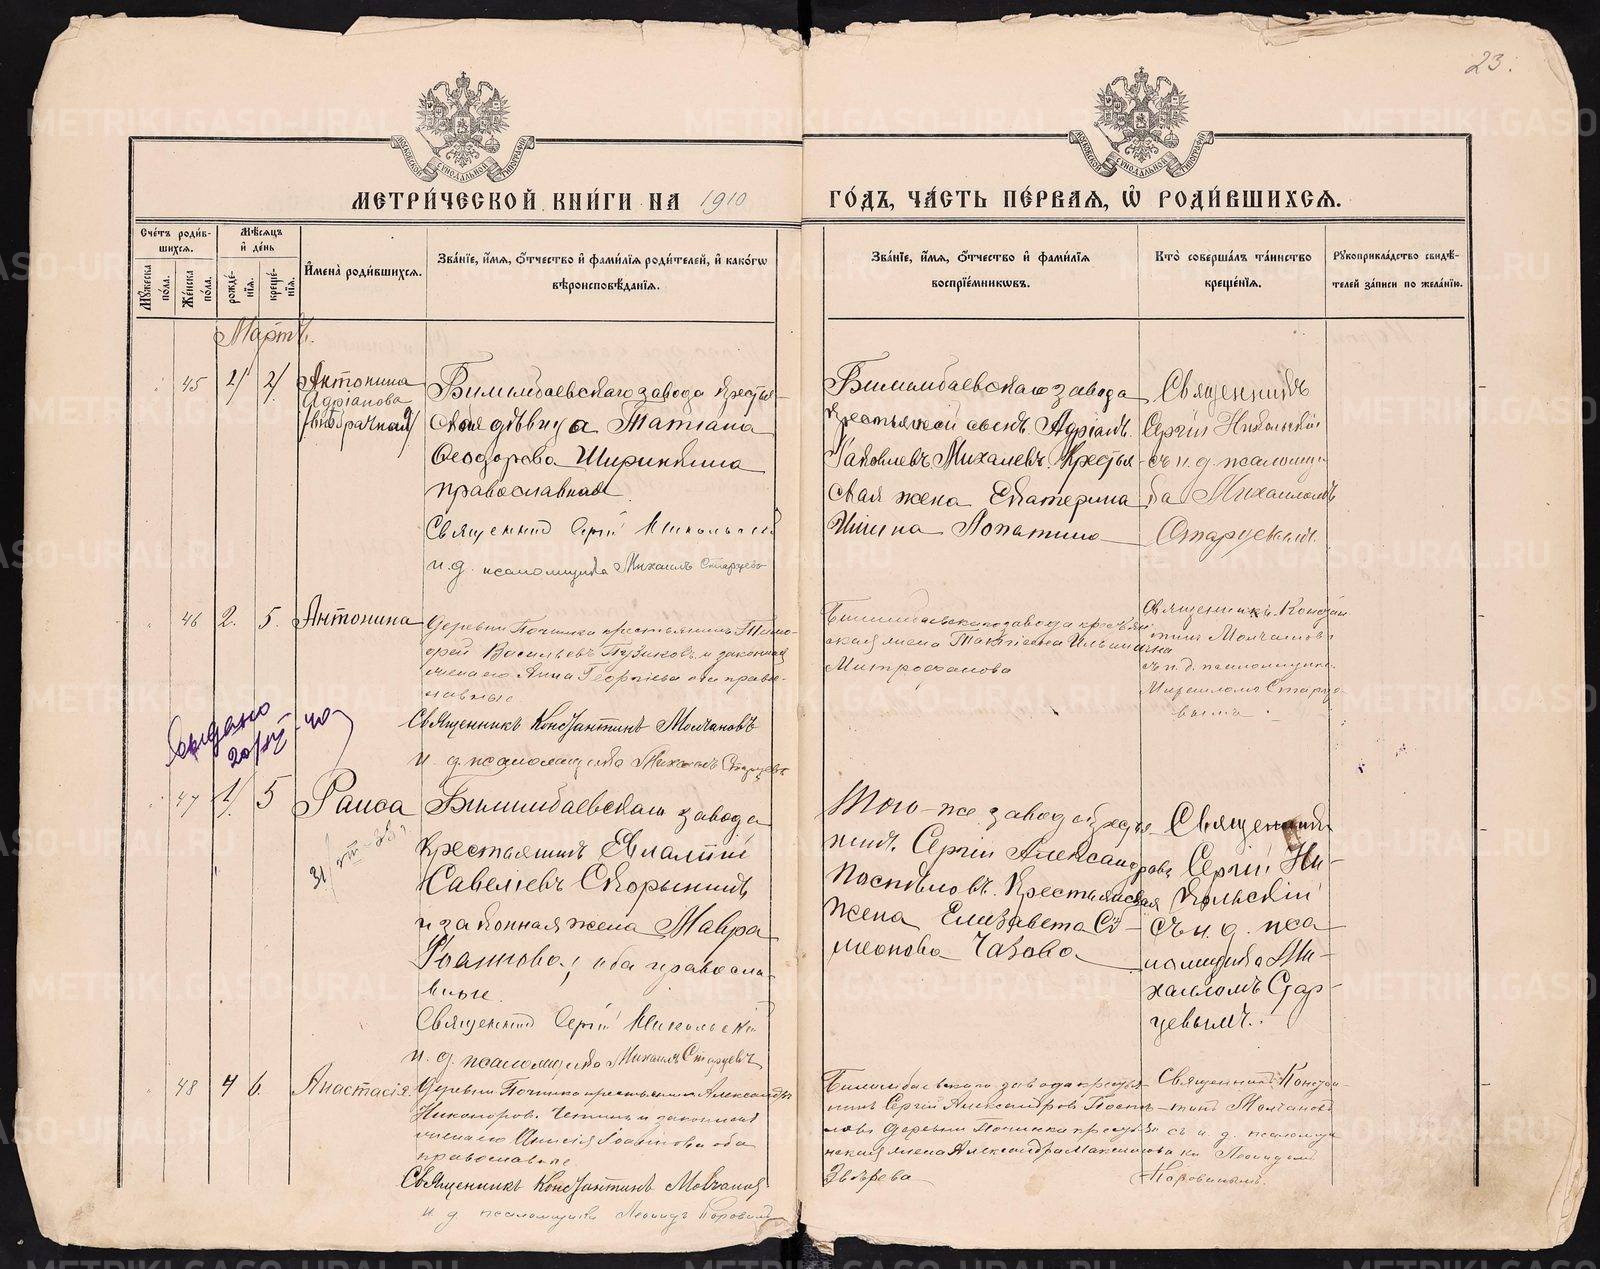 23.
МОСКОВСКОЙ СѴНОДАЛЬНОЙ ТИПОГРАФІИ
МОСКОВСКОЙ СѴНОДАЛЬНОЙ ТИПОГРАФІИ
МЕТРИ́ЧЕСКОЙ КНИ́ГИ НА 1910 ГО́ДЪ, ЧА́СТЬ ПЕ́РВАѦ, Ѡ҆ РОДИ́ВШИХСѦ.
Сче́тъ роди́в-
шихсѧ.
Мꙋ́жеска
по́ла.
Же́нска
по́ла.
Мѣ́сѧцъ
и҆ де́нь
рожде́-
нїѧ.
креще́-
нїѧ.
И҆мена̀ роди́вшихсѧ.
Зва́нїе, и҆́мѧ, ѻ҆́тчество и҆ фами́лїѧ роди́телей, и҆ како́гѡ
вѣроисповѣ́данїѧ.
Зва́нїе, и҆́мѧ, ѻ҆́тчество и҆ фами́лїѧ
воспрїе́мникѡвъ.
Кто̀ соверша́лъ та́инство
креще́нїѧ.
Рꙋкоприкла́дство свидѣ́-
телей за́писи по жела́нїю.
Мартъ.
45
2/
2/
Антонина
Адріанова
/внѣбрачная/
Билимбаевскаго завода крестьян-
ская дѣвица Татіана
Ѳеодорова Ширинкина
православная
Священникъ Сергій Никольскій
и. д. псаломщика Михаилъ Старцевъ
Билимбаевскаго завода
крестьянскій сынъ Адріанъ
Іаковлевъ Михалевъ. Крестьян-
ская жена Екатерина
Ильина Лопатина
Священникъ
Сергій Никольскій
съ и. д. псаломщи-
ка Михаиломъ
Старцевымъ
46
2.
5.
Антонина
Деревни Починка крестьянинъ Тимо-
фей Васильевъ Пузиковъ и законная
жена его Анна Георгіева оба право-
славные
Священникъ Константинъ Молчановъ
и. д. псаломщика Михаилъ Старцевъ
Билимбаевскаго завода крестьян-
ская жена Татіана Ильинична
Митрофанова
Священникъ Констан-
тинъ Молчановъ
съ и. д. псаломщика
Михаиломъ Старце-
вымъ
Выдано
47
1/
5
Раиса
Билимбаевскаго завода
крестьянинъ Евлампій
Савеліевъ Скорынинъ
и законная жена Мавра
Іоаннова, оба правосла-
вные
Священникъ Сергій Никольскій
и. д. псаломщика Михаилъ Старцевъ
Того-же завода крестья-
нинъ Сергій Александровъ
Поспѣловъ. Крестьянская
жена Елизавета Си-
меонова Чазова
Священникъ
Сергій Ни-
кольскій
съ и. д. пса
ломщика Ми-
хаиломъ Стар-
цевымъ.
48
4
6.
Анастасія.
Деревни Починка крестьянинъ Александръ
Никаноровъ и законная
жена его Анисія Іоаннова оба
православные
Священникъ Константинъ Молчановъ
и. д. псаломщика Леонидъ Коровинъ
Билимбаевскаго завода крестья-
нинъ Сергій Александровъ Поспѣ-
ловъ деревни Починка крестьян-
ская жена Александра Максимова
Звѣрева
Священникъ Констан-
тинъ Молчановъ
съ и. д. псаломщи
ка Леонидомъ
Коровинымъ.
METRIKI.GASO-URAL.RU